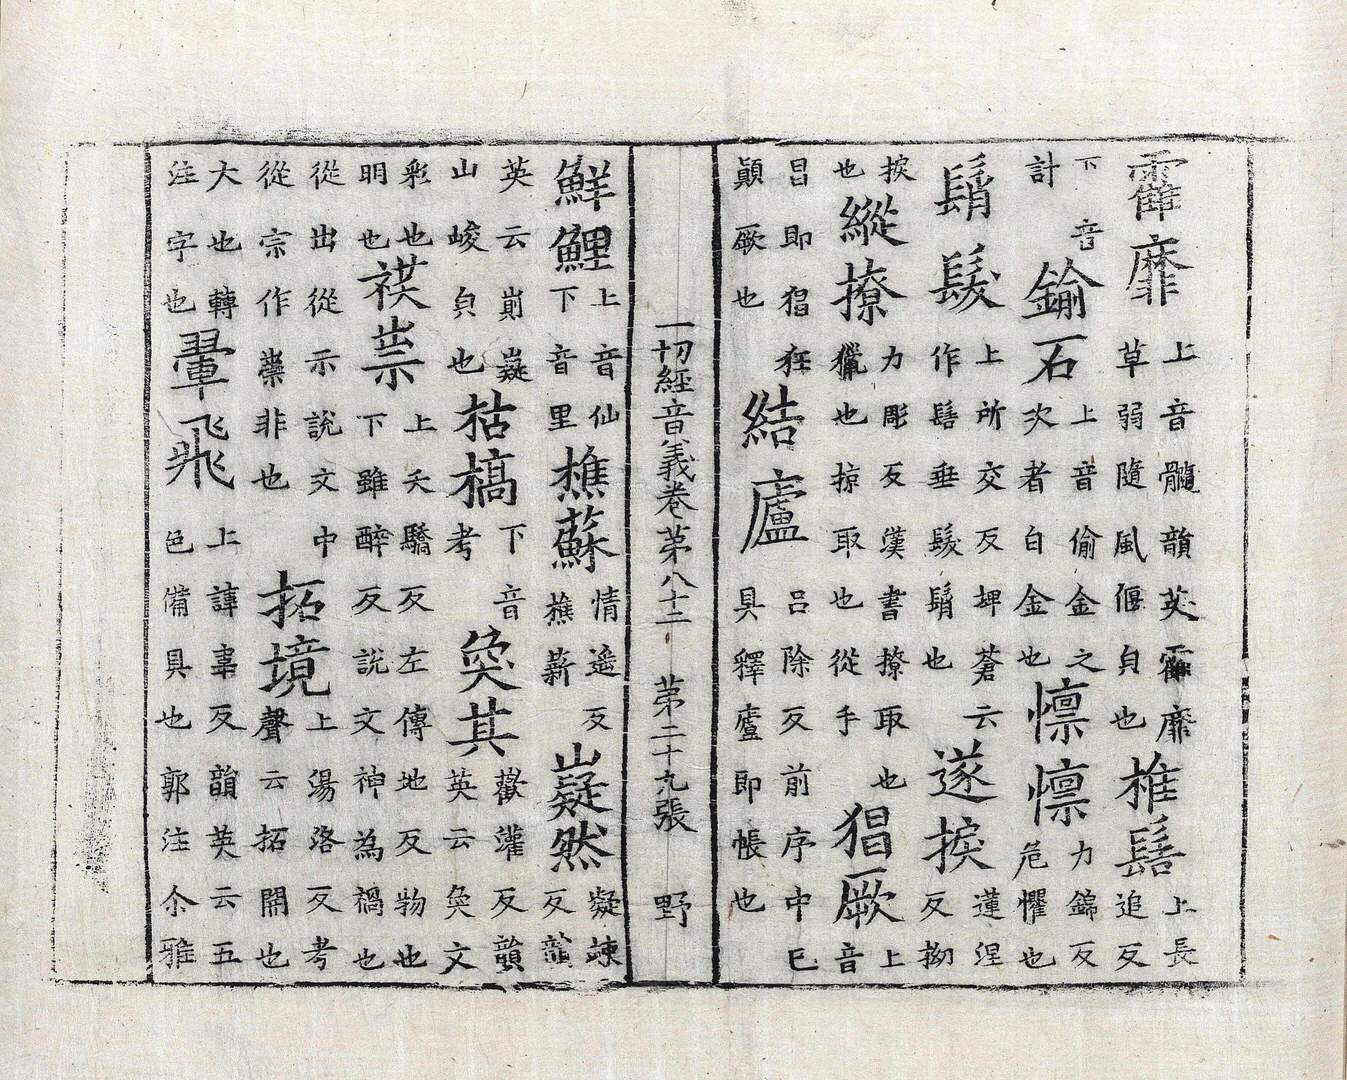 靃靡上音髓韻英靃靡草弱隨風偃皃也椎髻上長追反
下音計鍮石上音偷金之次者白金也懍懍力錦反危懼也
髾髮上所交反埤蒼云作髻垂髮髾也遂捩蓮涅反拗
捩也縱撩力彫反漢書撩取也獵也掠取也從手猖厥上音
昌即猖狂顛厥也結廬呂除反前序中已具釋廬即帳也
一切經音義卷第八十二 第二十九張 野
鮮鯉上音仙下音里樵蘇情遥反樵薪嶷然凝竦反韻
英云崱嶷山峻皃也枯槁下音考奐其歡灌反韻英云奐文
彩也明也祅祟上夭驕反左傳地反物也下雖醉反說文神為禍也
從出從示說文中從宗作祟非也拓境上湯洛反考聲云拓開也
大也轉注字也翬飛上諱韋反韻英云五色備具也郭注尒雅